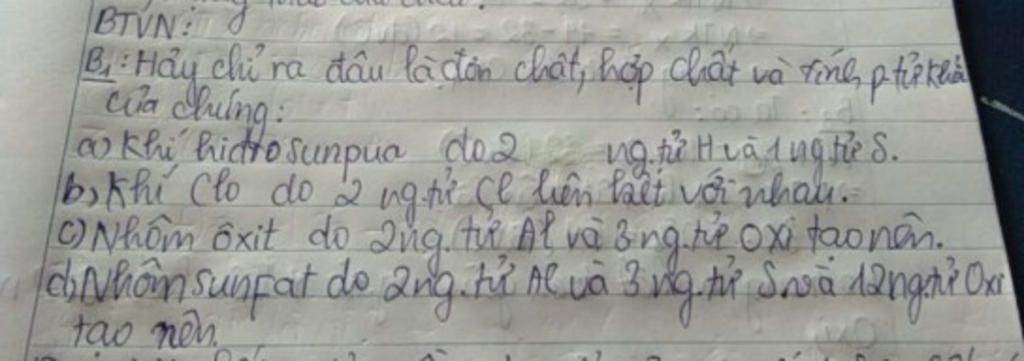 BTVN:
B1: Hãy chỉ ra đâu là đơn chất, hợp chất và tính p.tử khối
của chúng:
a) Khí hiđro sunpua do 2 ng.tử H và 1 ng.tử S.
b) Khí Clo do 2 ng.tử Cl liên kết với nhau.
c) Nhôm ôxit do 2 ng.tử Al và 3 ng.tử oxi tạo nên.
d) Nhôm sunfat do 2 ng.tử Al và 3 ng.tử S và 12 ng.tử Oxi
tạo nên.